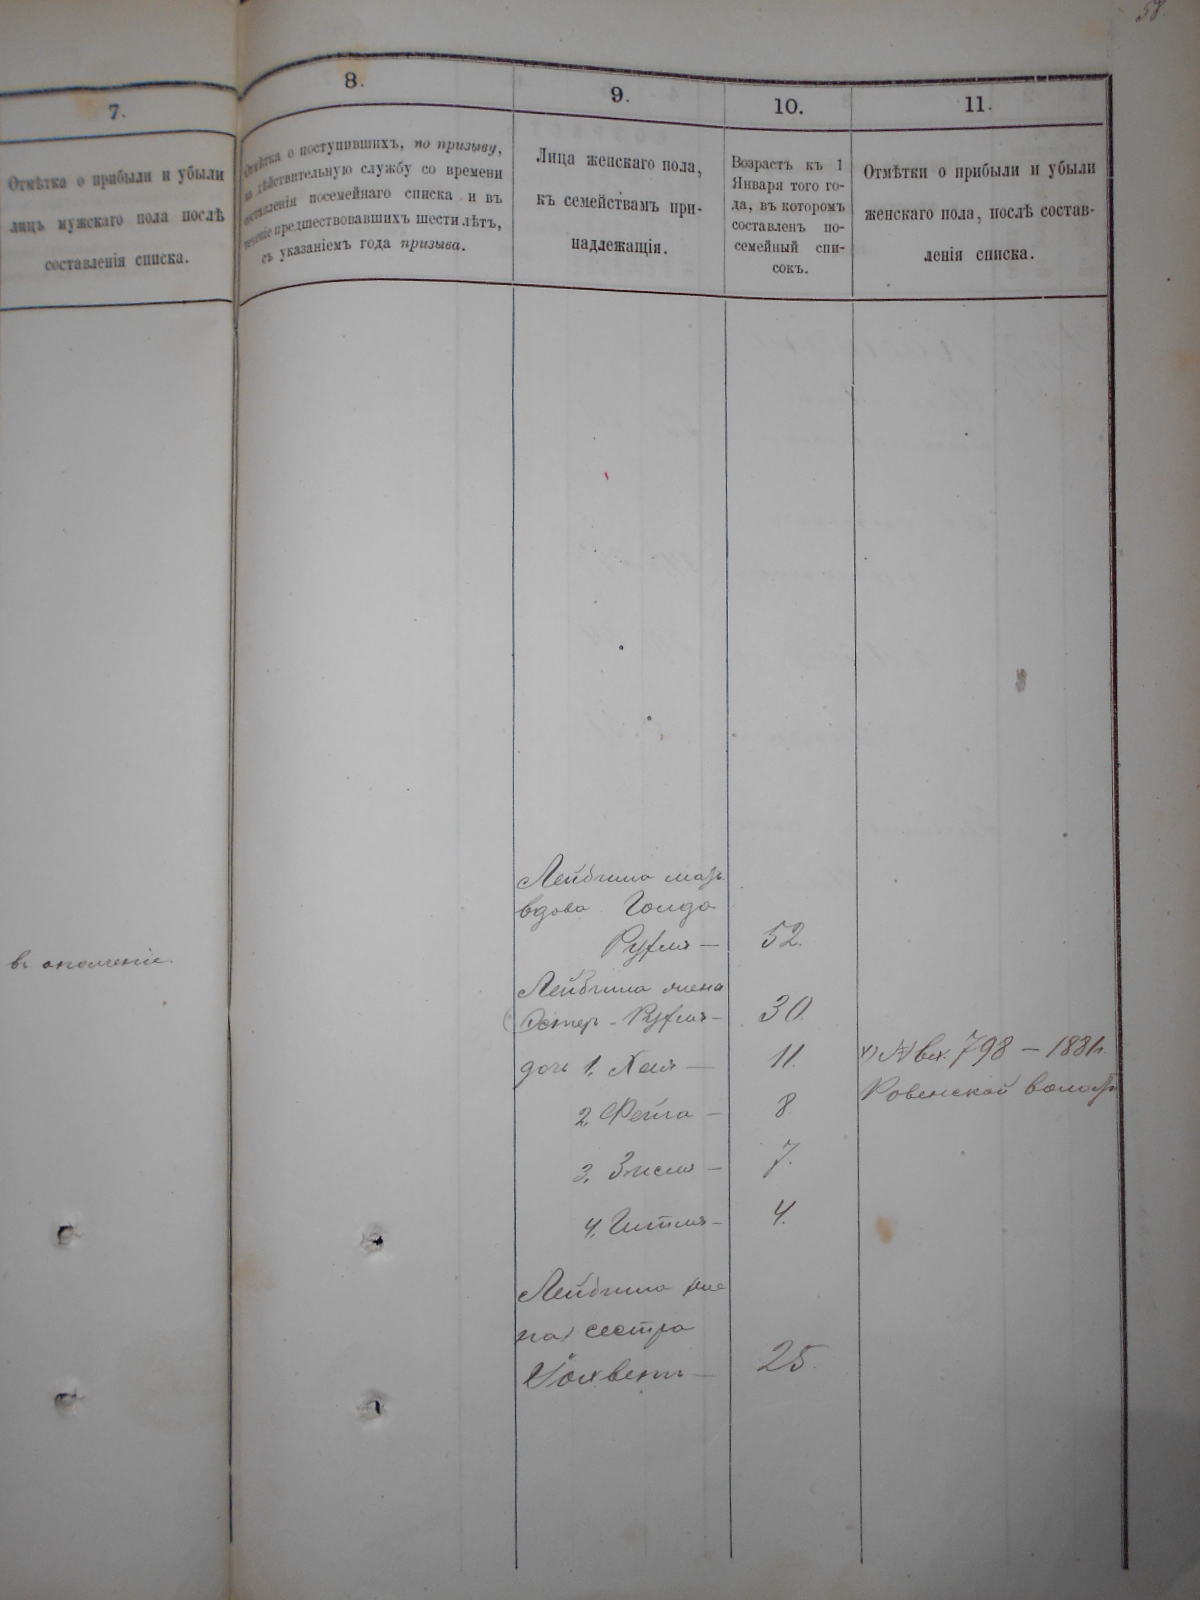 58.
7.
8.
9.
10.
11.
Отмѣтка о прибыли и убыли
лицъ мужскаго пола послѣ
составленія списка.
Отмѣтка о поступившихъ, по призыву,
на дѣйствительную службу со времени
составленія посемейнаго списка и въ
теченіе предшествовавшихъ шести лѣтъ,
съ указаніемъ года призыва.
Лица женскаго пола,
къ семействамъ при-
надлежащія.
Возрастъ къ 1
Января того го-
да, въ которомъ
составленъ по-
семейный спи-
сокъ.
Отмѣтки о прибыли и убыли
женскаго пола, послѣ состав-
ленія списка.
Лейбина мать
вдова Голда
Рухля — 52.
въ
Лейбина жена
Эстер-Рухля — 30.
дочь 1, Хая — 11.
798 — 1881г.
Ровенской волост
2, Фейга — 8
3, Зисля — 7.
4, Гитля — 4.
Лейбина
на) сестра
25.